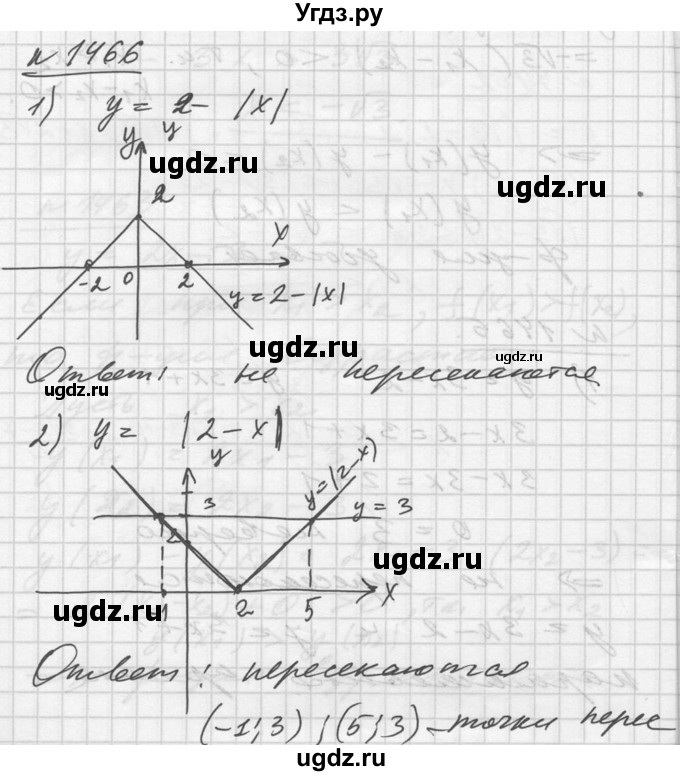 Угдз.ру
№ 1466
1) y = 2 - |x|
y y
ugdz.ru
ugdz.ru
2
x
-2 0 2
y = 2 - |x|
ugdz.ru
ugdz.ru
Ответ: не пересекаются
ugdz.ru
2) y = |2 - x|
ugdz.ru
y
y = |2 - x|
3
y = 3
2
ugdz.ru
-1 2 5 x
ugdz.ru
Ответ: пересекаются
ugdz.ru
(-1; 3) ; (5; 3) - точки пере
ugdz.ru